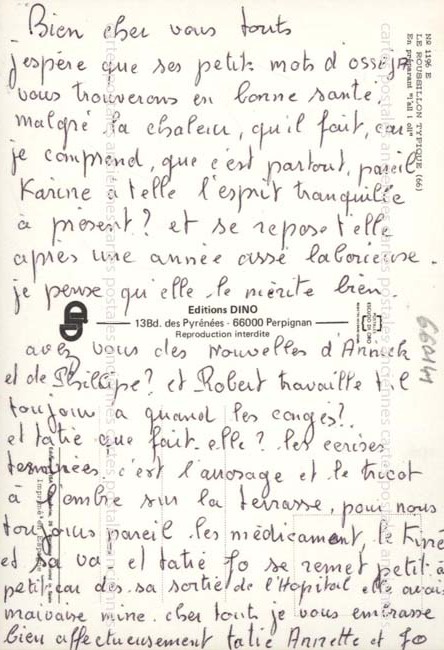 Bien cher vous touts
j'espère que ses petits mots d'osséja
vous trouverons en bonne santé.
malgré la chaleur, qu'il fait, car
je comprend, que c'est partout, pareil
Karine a telle l'esprit tranquille
à présent? et se repose t'elle
après une année assé laborieuse.
je pense qu'elle le mérite bien.
Editions DINO
13Bd. des Pyrénées - 66000 Perpignan
Reproduction interdite
avez vous des nouvelles d'Annick
et de Phillipe? et Robert travaille t il
toujours a quand les congés?
et tatie que fait elle? les cerises
terminées c'est l'arrosage et le tricot
à l'ombre sur la terrasse, pour nous
toujours pareil les médicament, le Kiné
et sa va et tatie Jo se remet petit à
petit car des sa sortie de l'Hopital elle avait
mauvaise mine. cher touts je vous embrasse
bien affectueusement tatie Annette et Jo
Nº 1196 E
LE ROUSSILLON TYPIQUE (66)
En préparant "l'all i oli"